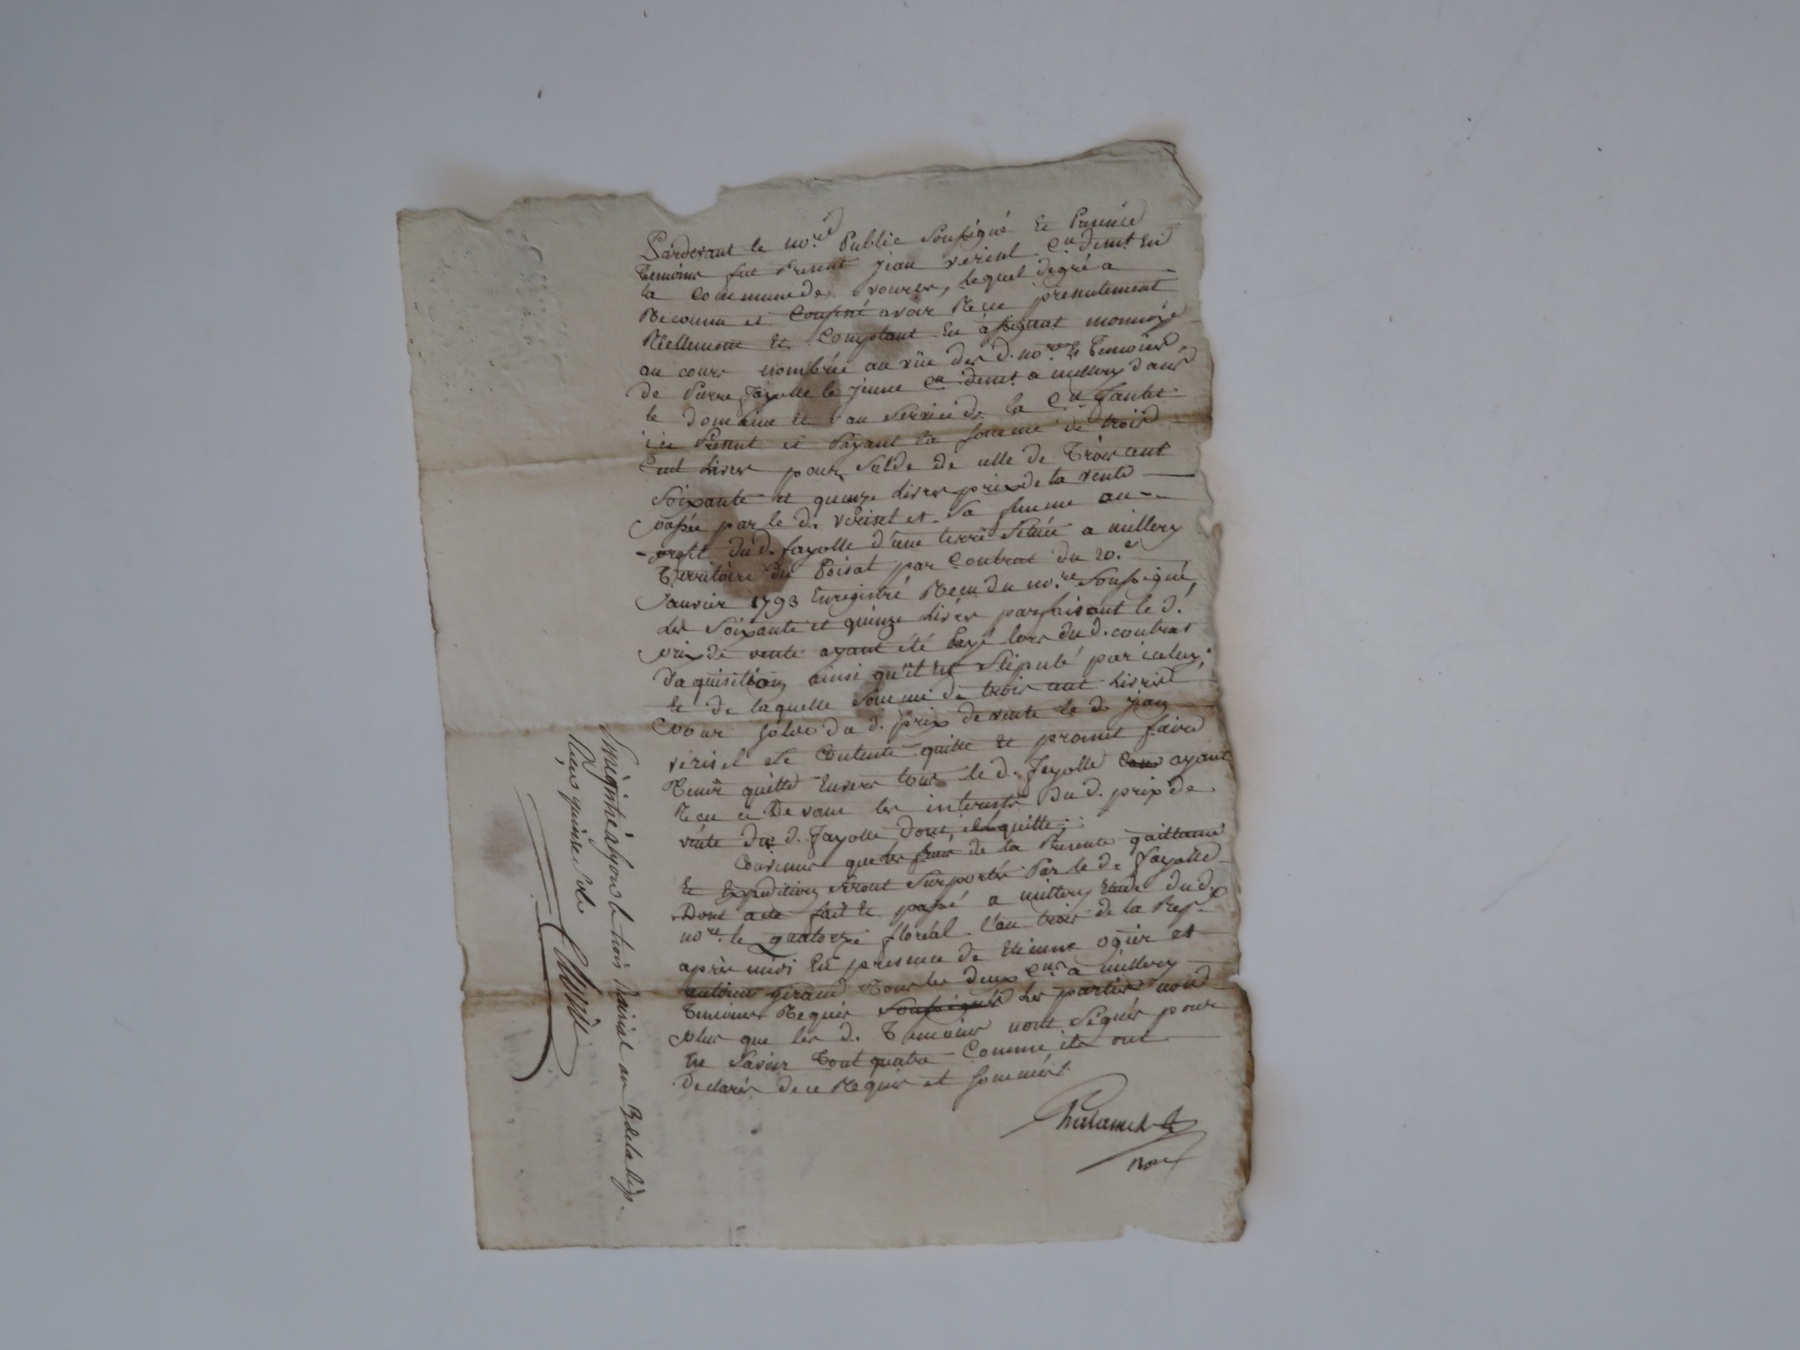 Pardevant le no.re Public Soussigné Et Presence
Temoins fut Present jean verisel C.en demt. En
la Commune de vourles, lequel degré a
Reconnu et Confessé avoir Recu presentement
Réellement Et Comptant En assignat monnoye
au cours nombrée au vüe des d. no.re & Temoins,
de Pierre Fayolle le jeune C.en demt. a millery dans
le domaine Et au Service de la C.en
ici Present et Payant la somme de trois
Cent Livres pour Solde de celle de Trois cent
Soixante et quinze Livres prix de la vente
passée par le d. Verisel et Sa femme au
profit du d. fayolle d'une terre Située a millery
Territoire du Poisat par Contrat du 20.e
Janvier 1793 Enregistré Recu du no.re Soussigné,
les Soixante et quinze Livres parfaisant le d.
prix de vente ayant été Payé lors du d. contrat
d'aquisition, ainsi qu'il Est Stipulé par icelui,
Et de laquelle Somme de trois cent Livres
pour Solde du d. prix de vente le d. jean
verisel Se Contente quitte Et promet faire
Tenir quitte Envers tous le d. Fayolle ayant
Recu ci Devant les interests du d. prix de
vente du d. Fayolle dont, il quitte,
Convenus que les frais de la Presente quittance
Et Expedition Seront Surportés Par le d. Fayolle
Dont acte fait Et passé a millery Etude du d.
no.re le quatorze floréal l'an trois de la Rep.
après midi En presence de Etienne ogier et
antoine giraud Tous les deux C.ens a millery
Temoins Requis Soussignés Les parties non
plus que les d. Temoins n'ont Signés pour
ne Savoir Tout quatre Comme ils ont
Declarés de ce Requis et Sommés.
no.re
Enregistré a lyon le trois Prairial an 3 de la Rép.
Reçu quinze sols